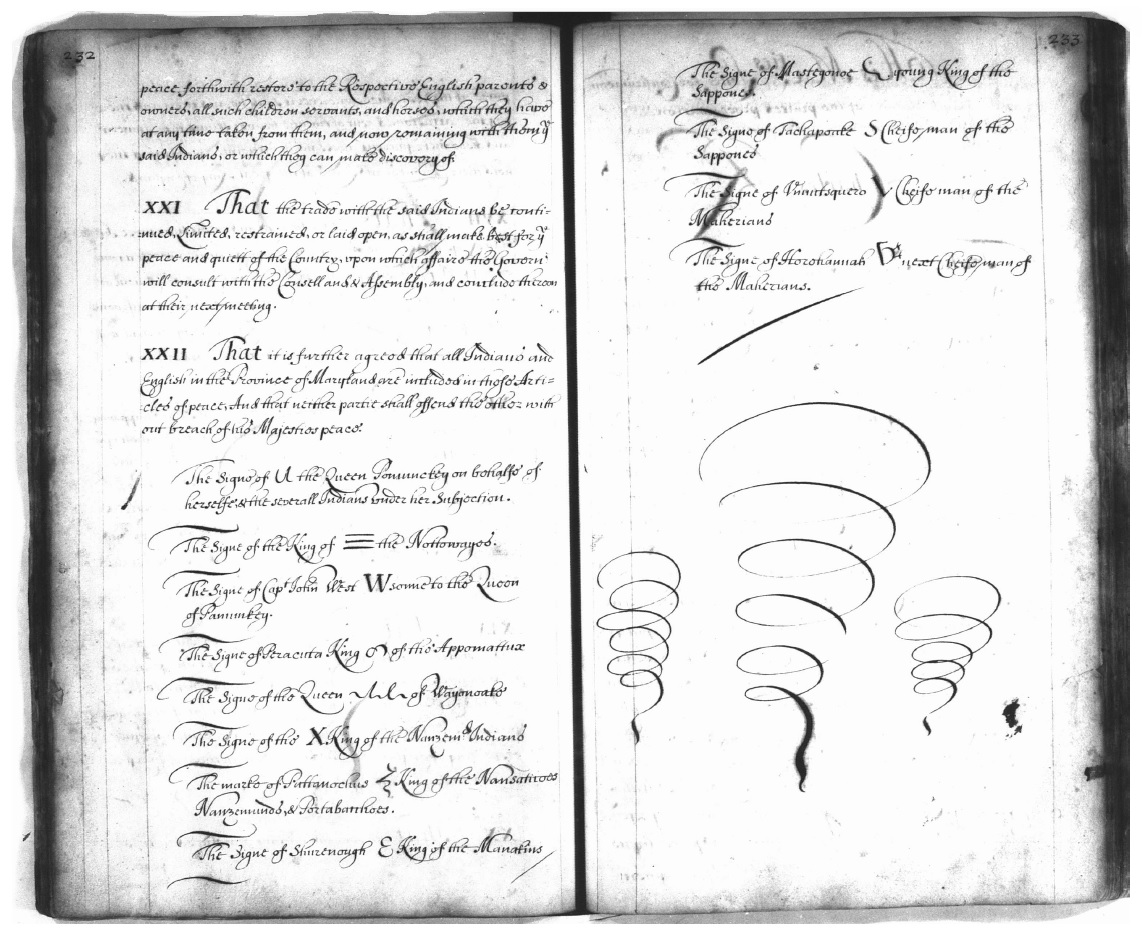 232
peace forthwith restore to the Respective English parents &
owners, all such children servants, and horses, which they have
at any time taken from them, and now remaining with them yᵉ
said Indians, or which they can make discovery of.
XXI That the trade with the said Indians be conti-
nued, Limited, restrained, or laid open, as shall make best for yᵉ
peace and quiett of the Country, upon which affaire the Governʳ
will consult with the Counsell and Assembly, and conclude thereon
at their next meeting.
XXII That it is further agreed that all Indians and
English in the Province of Maryland are included in those Arti=
cles of peace, And that neither partie shall offend the other with
out breach of his Majesties peace.
The Signe of U the Queen Pomunckey on behalfe of
herselfe & the severall Indians under her Subjection.
The Signe of the King of the Nottowayes.
The Signe of Capᵗ John West W sonne to the Queen
of Pamunkey.
The Signe of Peracuta King of the Appomattux
The Signe of the Queen of Wayonoake
The Signe of the X King of the Nanzemᵈ Indians
The marke of Pattanochus King of the Nansaticoes
Nanzemunds, & Portabacchoes.
The Signe of Shurenough King of the Manakins
233
The Signe of Mastegonoe young King of the
Sappones.
The Signe of Tachapoake S Cheife man of the
Sappones
The Signe of Vnuntsquero Y Cheife man of the
Maherians
The Signe of Horehannah next Cheife man of
the Maherians.